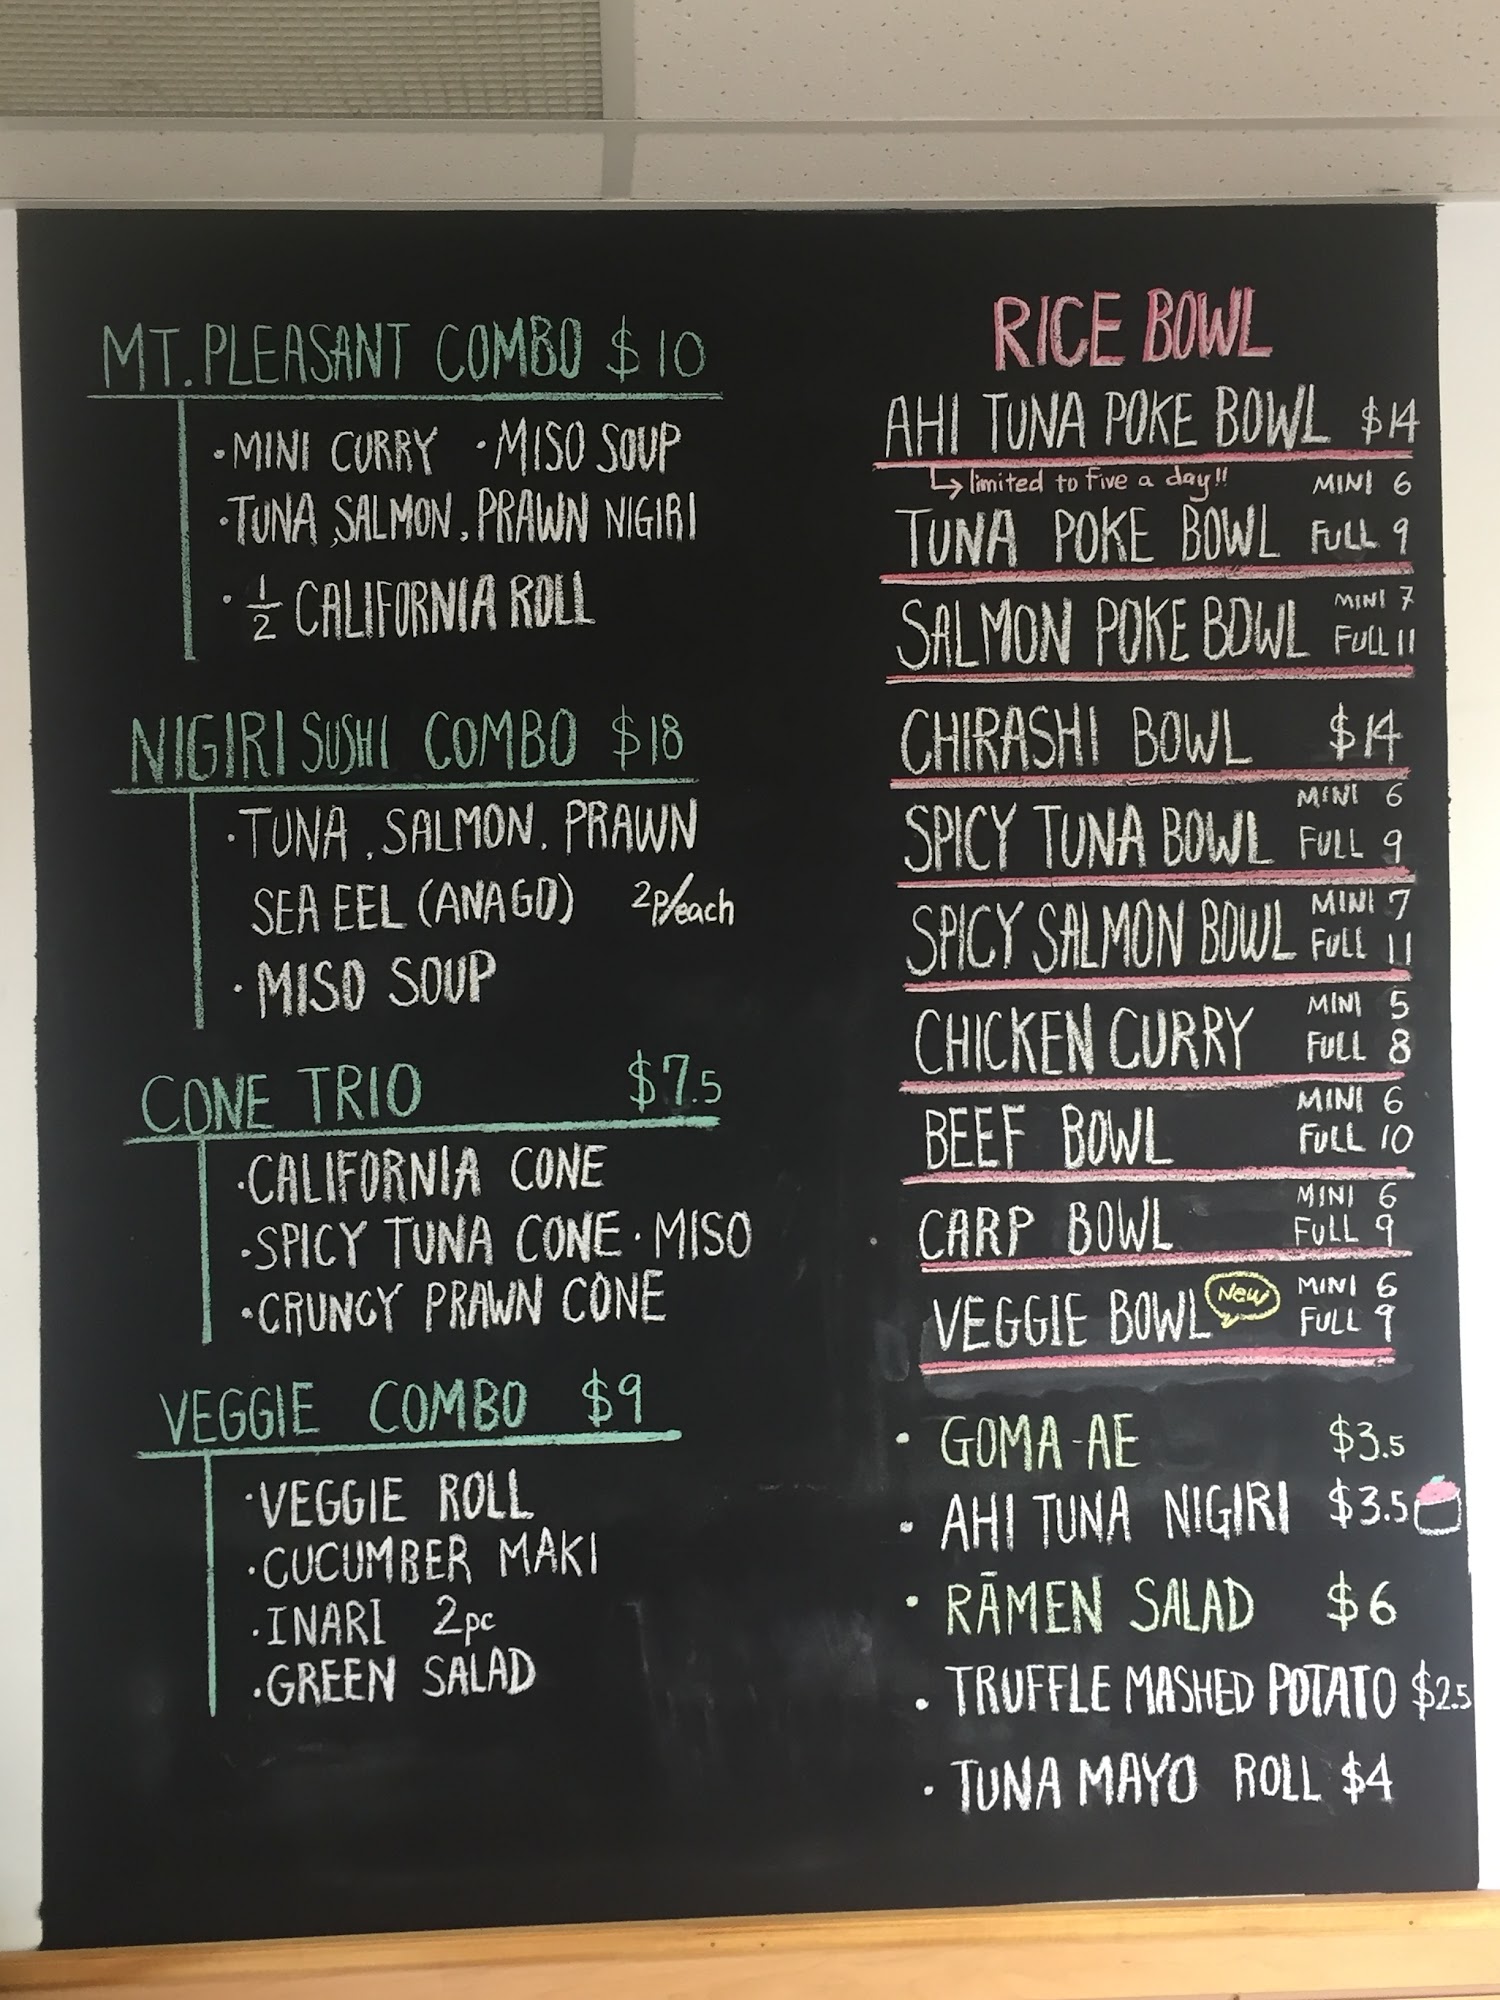 MT. PLEASANT COMBO $10
· MINI CURRY · MISO SOUP
· TUNA, SALMON, PRAWN NIGIRI
· 1/2 CALIFORNIA ROLL
NIGIRI SUSHI COMBO $18
· TUNA, SALMON, PRAWN
SEA EEL (ANAGO) 2p/each
· MISO SOUP
CONE TRIO $7.5
· CALIFORNIA CONE
· SPICY TUNA CONE · MISO
· CRUNCY PRAWN CONE
VEGGIE COMBO $9
· VEGGIE ROLL
· CUCUMBER MAKI
· INARI 2pc
· GREEN SALAD
RICE BOWL
AHI TUNA POKE BOWL $14
↳ limited to Five a day!!
TUNA POKE BOWL MINI 6
FULL 9
SALMON POKE BOWL MINI 7
FULL 11
CHIRASHI BOWL $14
SPICY TUNA BOWL MINI 6
FULL 9
SPICY SALMON BOWL MINI 7
FULL 11
CHICKEN CURRY MINI 5
FULL 8
BEEF BOWL MINI 6
FULL 10
CARP BOWL MINI 6
FULL 9
VEGGIE BOWL New MINI 6
FULL 9
· GOMA-AE $3.5
· AHI TUNA NIGIRI $3.5
· RĀMEN SALAD $6
· TRUFFLE MASHED POTATO $2.5
· TUNA MAYO ROLL $4